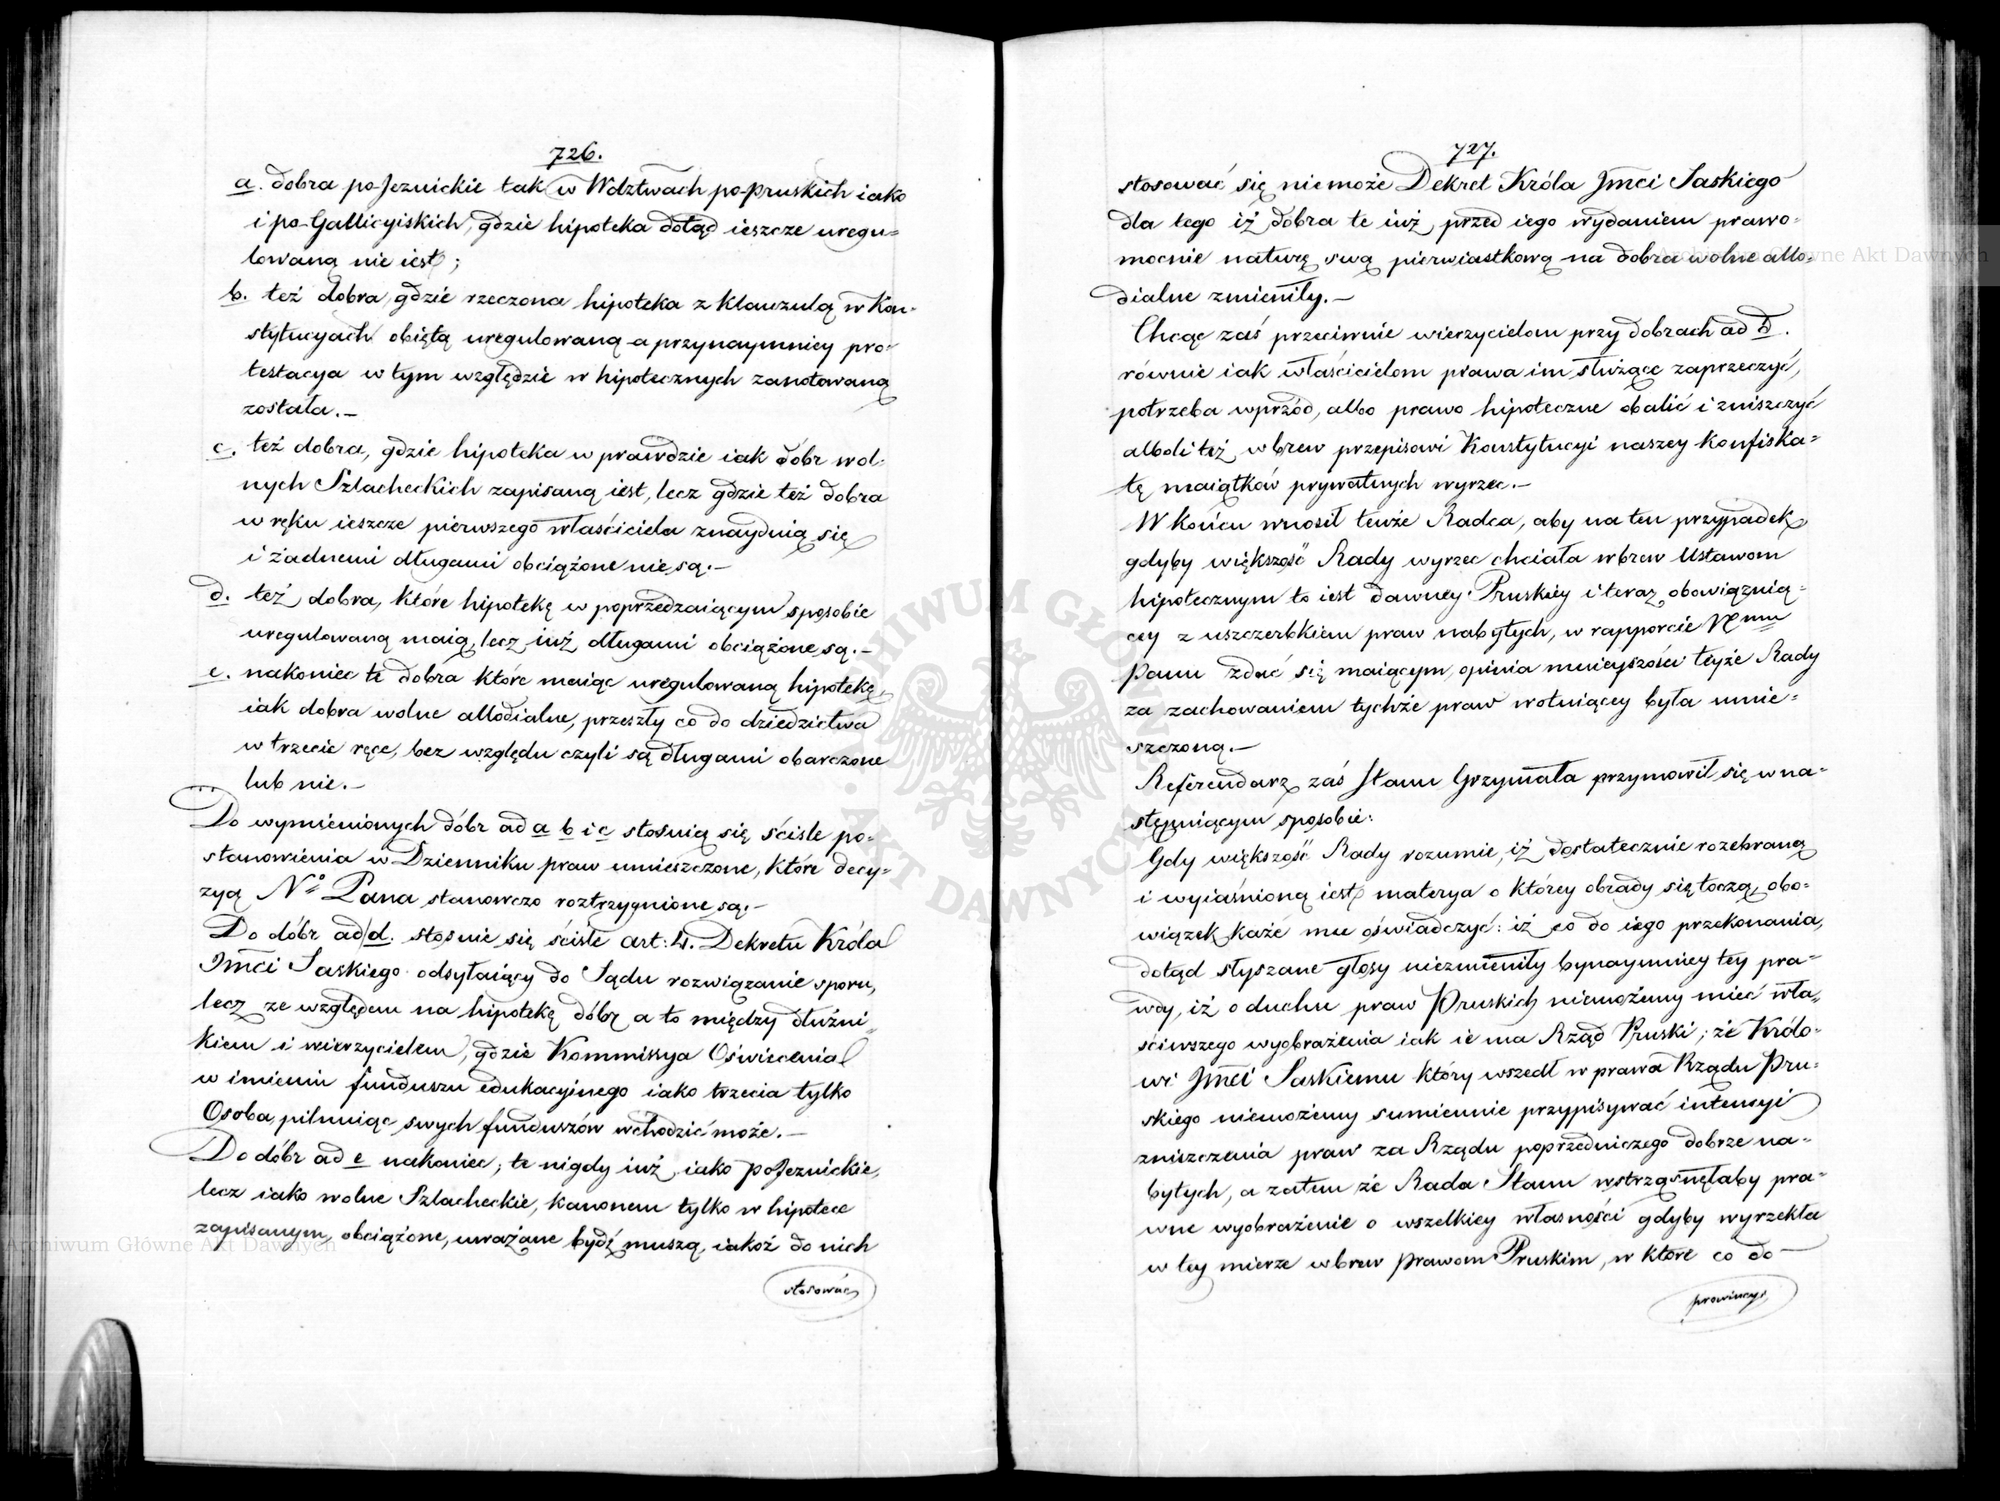 726.
a. dobra po-Jeznickie tak w Wdztwach po-pruskich iako
i po-Gallicyiskich, gdzie hipoteka dotąd ieszcze uregu-
lowaną nie iest;
b. też dobra, gdzie rzeczona hipoteka z klauzulą w Kon-
stytucyach obiętą uregulowaną a przynaymniey pro-
testacya w tym względzie w hipotecznych zanotowaną
została.—
c. też dobra, gdzie hipoteka w prawdzie iak dóbr wol-
nych Szlacheckich zapisaną iest, lecz gdzie też dobra
w ręku ieszcze pierwszego właściciela znayduią się
i żadnemi długami obciążone nie są.—
d. też dobra, które hipotekę w poprzedzaiącym sposobie
uregulowaną maią, lecz iuż długami obciążone są.—
e. nakoniec te dobra które maiąc uregulowaną hipotekę
iak dobra wolne allodialne, przeszły co do dziedzictwa
w trzecie ręce, bez względu czyli są długami obarczone
lub nie.—
Do wymienionych dóbr ad a b i c stosuią się ściśle po-
stanowienia w Dzienniku praw umieszczone, które decy-
zyą No Pana stanowczo roztrzygnione są.—
Do dóbr ad d. stosuie się ściśle art: 4. Dekretu Króla
Jmci Saskiego odsyłaiący do Sądu rozwiązanie sporu,
lecz ze względem na hipotekę dóbr a to między dłużni-
kiem i wierzycielem, gdzie Kommissya Oświecenia
w imieniu funduszu edukacyjnego iako trzecia tylko
Osoba, pilnuiąc swych funduszów wchodzić może.—
Do dóbr ad e nakoniec; te nigdy iuż iako poJeznickie,
lecz iako wolne Szlacheckie, kanonem tylko w hipotece
zapisanym, obciążone, uważane bydź muszą, iakoż do nich
stosować
727.
stosować się niemoże Dekret Króla Jmci Saskiego
dla tego iż dobra te iuż przed iego wydaniem prawo-
mocnie naturę swą pierwiastkową na dobra wolne allo-
dialne zmieniły.—
Chcąc zaś przeciwnie wierzycielom przy dobrach ad D.
równie iak właścicielom prawa im służące zaprzeczyć,
potrzeba wprzód, albo prawo hipoteczne obalić i zniszczyć
albo li też wbrew przepisowi Konstytucyi naszey konfiska-
tę maiątków prywatnych wyrzec.—
W końcu wnosił tenże Radca, aby na ten przypadek
gdyby większość Rady wyrzec chciała wbrew Ustawom
hipotecznym to iest dawney Pruskiey i teraz obowiązuią-
cey z uszczerbkiem praw nabytych, w rapporcie Nmu
Panu zdać się maiącym, opinia mnieyszości teyże Rady
za zachowaniem tychże praw wotuiącey była umie-
szczoną.—
Referendarz zaś Stanu Grzymała przymowił się w na-
stępuiącym sposobie:
Gdy większość Rady rozumie, iż dostatecznie rozebraną
i wyiaśnioną iest materya o którey obrady się toczą, obo-
wiązek każe mu oświadczyć: iż co do iego przekonania,
dotąd słyszane głosy niezmieniły bynaymniey tey pra-
wdy, iż o duchu praw Pruskich niemożemy mieć wła-
ściwszego wyobrażenia iak ie ma Rząd Pruski; że Królo-
wi Jmci Saskiemu który wszedł w prawa Rządu Pru-
skiego niemożemy sumiennie przypisywać intencyi
zniszczenia praw za Rządu poprzedniczego dobrze na-
bytych, a zatem że Rada Stanu wstrząsnęłaby pra-
wne wyobrażenie o wszelkiey własności gdyby wyrzekła
w tey mierze wbrew prawom Pruskim, w które co do
prowincyi
Archiwum Główne Akt Dawnych